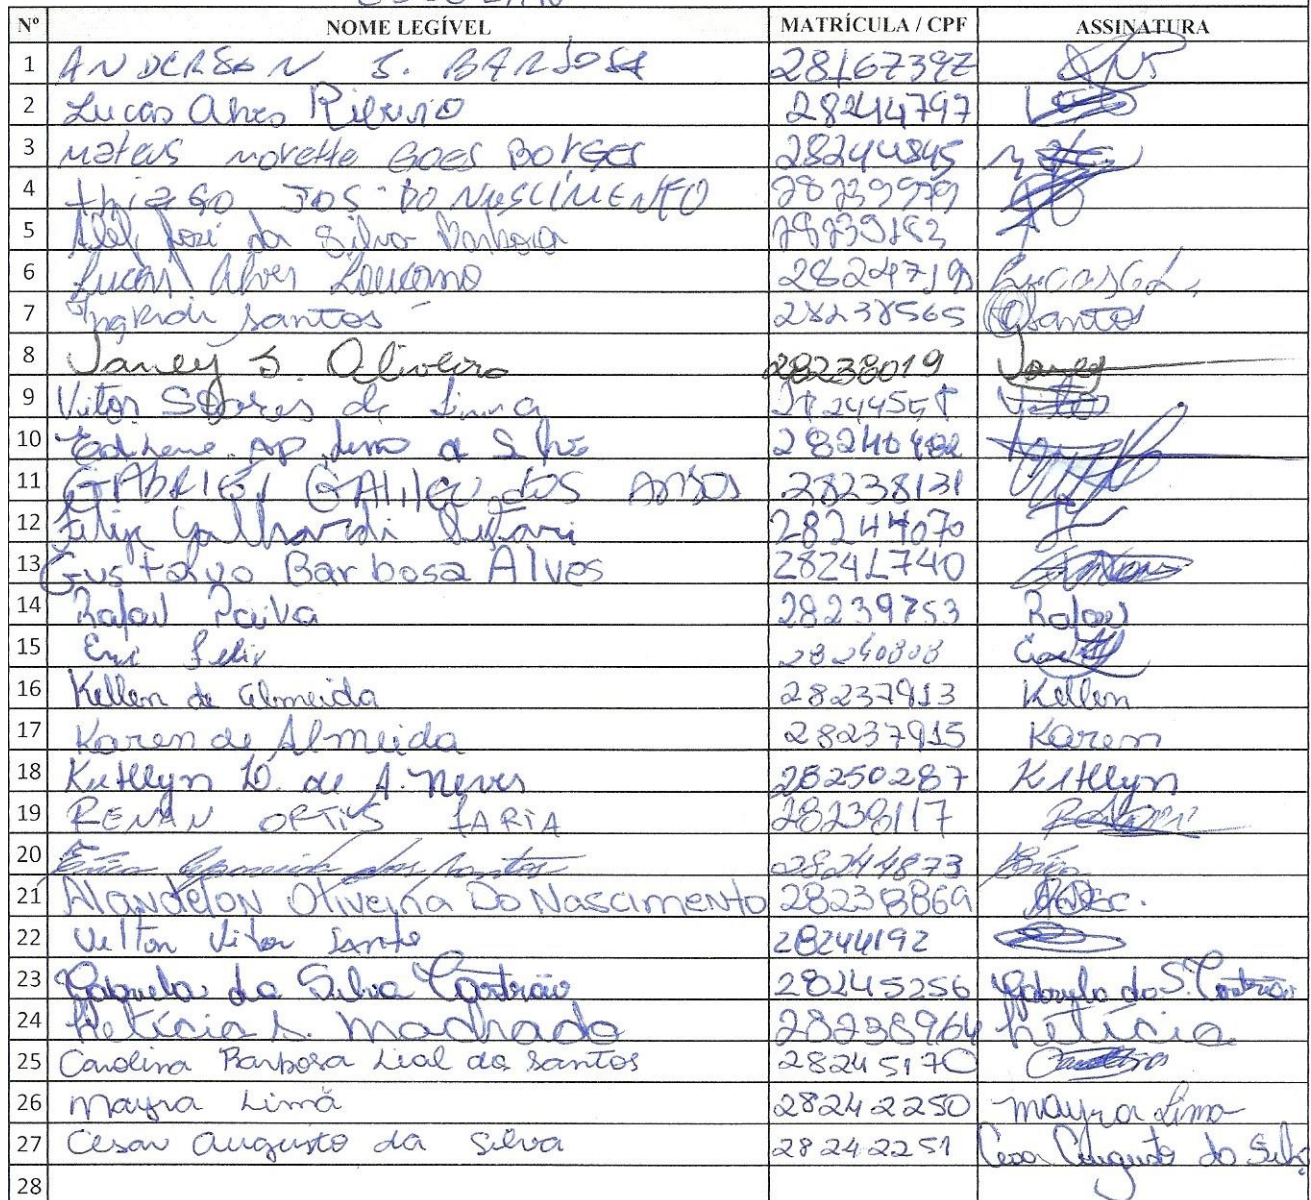 Nº NOME LEGÍVEL MATRÍCULA / CPF ASSINATURA
1 ANDERSON S. BARBOSA 28167397
2 Lucas Alves Ribeiro 28244797
3 Mateus Moretto GOES BORGES 28244845
4 thiago JOSÉ DO NASCIMENTO 28239979
5 José da Silva Barbosa 28239152
6 Lucas Alves 2824719 Lucas
7 Ingridi Santos 28238565 Santos
8 Janey S. Oliveira 28238019 Janey
9 Vitor Soares de Lima Vitor
10 Edilene Ap. 28240482
11 GABRIEL GALILEU dos ANJOS 28238131
12 Felip Galhardi 28244070
13 Gustavo Barbosa Alves 28241740
14 Rafael Paiva 28239753 Rafael
15 Felix 28240808
16 Kellen de Almeida 28237913 Kellen
17 Karen de Almeida 28237915 Karen
18 Ketllyn de A. Neves 28250287 Ketllyn
19 RENAN ORTIS FARIA 28238117
20 Érica Aparecida dos Santos 28244873 Érica
21 Alandelon Oliveira Do Nascimento 28238869
22 Uelton Vitor 28244192
23 Gabriela da Silva 28245256 Gabriela da S.
24 Letícia S. Machado 28238964 Letícia
25 Carolina Barbosa Leal dos Santos 28245170
26 Mayra Lima 28242250 Mayra Lima
27 Cesar Augusto da Silva 28242251 Cesar Augusto da Silva
28